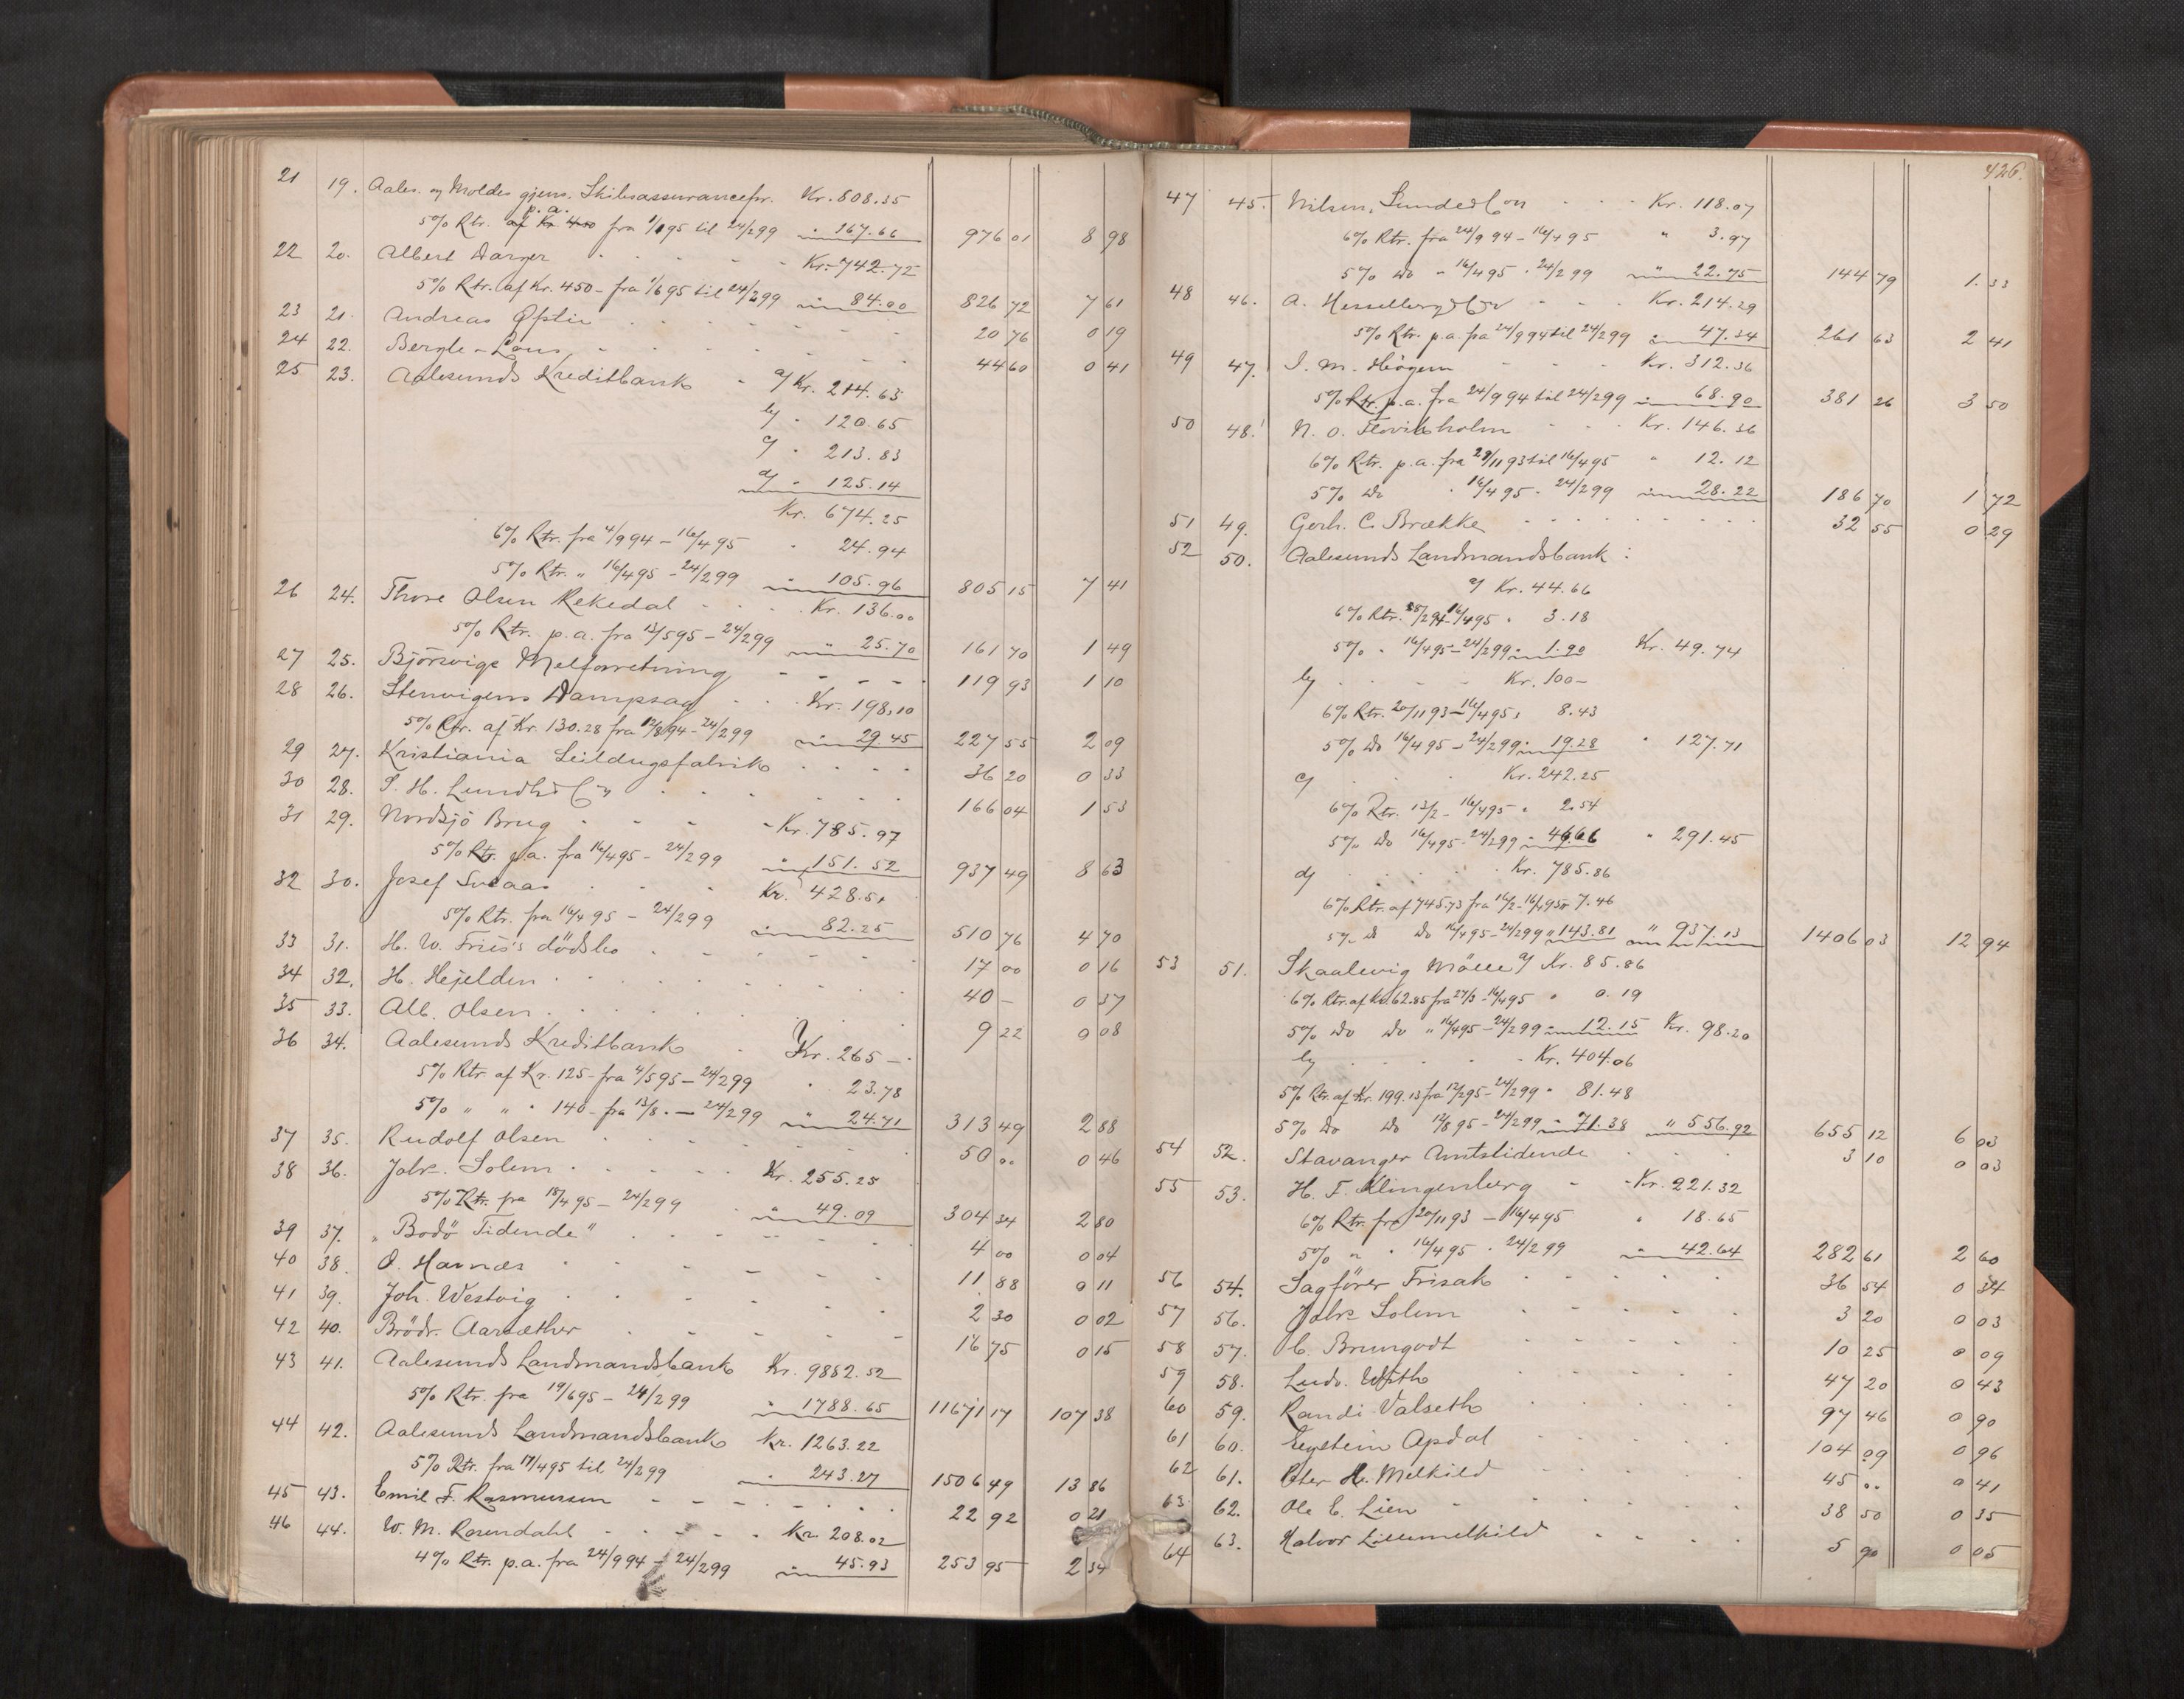 21 19. Aales. og Moldes gjens. Skibsassurancefor. Kr. 808.35
p.a.
5% Rtr. af Kr. 450 fra 1/1 95 til 24/2 99 " 167.66 976 01 8 98
22 20. Albert Warger Kr. 742.72
5% Rtr. af Kr. 450 - fra 1/6 95 til 24/2 99 " 84.00 826 72 7 61
23 21. Andreas Opstie 20 76 0 19
24 22. Bergh - Lous 44 60 0 41
25 23. Aalesunds Kreditbank a/ Kr. 214.63
b/ " 120.65
c/ " 213.83
d/ " 125.14
Kr. 674.25
6% Rtr. fra 4/9 94 - 16/4 95 " 24.94
5% Rtr. " 16/4 95 - 24/2 99 " 105.96 805 15 7 41
26 24. Thore Olsen Rekedal Kr. 136.00
5% Rtr. p.a. fra 13/5 95 - 24/2 99 " 25.70 161 70 1 49
27 25. Björsvigs Melforretning 119 93 1 10
28 26. Stenvigens Dampsag Kr. 198,10
5% Rtr. af Kr. 130.28 fra 12/8 94 - 24/2 99 " 29.45 227 55 2 09
29 27. Kristiania Seildugsfabrik 36 20 0 33
30 28. S. H. Lundh & Co 166 04 1 53
31 29. Nordsjö Brug Kr. 785.97
5% Rtr. p.a. fra 16/4 95 - 24/2 99 " 151.52 937 49 8 63
32 30. Josef Svaas Kr. 428.51
5% Rtr. fra 16/4 95 - 24/2 99 " 82.25 510 76 4 70
33 31. H. W. Friis's dödsbo 17 00 0 16
34 32. H. Hejelden 40 - 0 37
35 33. Alb. Olsen 9 22 0 08
36 34. Aalesunds Kreditbank Kr. 265 -
5% Rtr. af Kr. 125 - fra 4/5 95 - 24/2 99 " 23.78
5% " " " 140 - fra 13/8 " - 24/2 99 " 24.71 313 49 2 88
37 35. Rudolf Olsen 50 00 0 46
38 36. Jakr. Solem Kr. 255.25
5% Rtr. fra 18/4 95 - 24/2 99 " 49.09 304 34 2 80
39 37. "Bodö Tidende" 4 00 0 04
40 38. O. Havnæs 11 88 0 11
41 39. Joh. Westvig 2 30 0 02
42 40. Brödr. Aarsæther 16 75 0 15
43 41. Aalesunds Landmandsbank Kr. 9882.52
5% Rtr. fra 19/6 95 - 24/2 99 " 1788.65 11671 17 107 38
44 42. Aalesunds Landmandsbank Kr. 1263.22
5% Rtr. fra 17/4 95 til 24/2 99 " 243.27 1506 49 13 86
45 43. Emil F. Rasmussen 22 92 0 21
46 44. W. M. Rosendahl Kr. 208.02
4% Rtr. p.a. fra 24/9 94 - 24/2 99 " 45.93 253 95 2 34
426.
47 45. Nilsen, Sunde & Con Kr. 118.07
6% Rtr. fra 24/9 94 - 16/4 95 " 3.97
5% Do " 16/4 95 " 24/2 99 " 22.75 144 79 1.33
48 46. A. Hesselberg & Co Kr. 214.29
5% Rtr. p.a. fra 24/9 94 til 24/2 99 " 47.34 261 63 2 41
49 47. J. M. Högem Kr. 312.36
5% Rtr. p.a. fra 24/9 94 til 24/2 99 " 68.90 381 26 3 50
50 48. N. O. Flovikholm Kr. 146.36
6% Rtr. p.a. fra 29/11 93 til 16/4 95 " 12.12
5% Do " 16/4 95 " 24/2 99 " 28.22 186 70 1 72
51 49. Gerh. C. Brække 32 55 0 29
52 50. Aalesunds Landmandsbank :
a/ Kr. 44.66
6% Rtr. 28/2 94 - 16/4 95 " 3.18
5% " 16/4 95 - 24/2 99 " 1.90 Kr. 49.74
b/ Kr. 100 -
6% Rtr. 20/11 93 - 16/4 95 " 8.43
5% Do 16/4 95 - 24/2 99 " 19.28 " 127.71
c/ Kr. 242.25
6% Rtr. 13/2 - 16/4 95 " 2.54
5% Do 16/4 95 - 24/2 99 " 46.66 " 291.45
d/ Kr. 785.86
6% Rtr. af 745.73 fra 16/2 - 16/4 95 " 7.46
5% d Do 16/4 95 - 24/2 99 " 143.81 " 937.13 1406 03 12 94
53 51. Skaalevig Mölle a/ Kr. 85.86
6% Rtr. af Kr. 62.85 fra 27/3 - 16/4 95 " 0.19
5% Do Do " 16/4 95 - 24/2 99 " 12.15 Kr. 98.20
b/ Kr. 404.06
5% Rtr. af Kr. 199.13 fra 12/2 95 - 24/2 99 " 81.48
5% Do Do 12/8 95 - 24/2 99 " 71.38 " 556.92 655 12 6 03
54 52. Stavanger Amtstidende 3 10 0 03
55 53. H. F. Klingenberg Kr. 221.32
6% Rtr. fra 20/11 93 - 16/4 95 " 18.65
5% " " 16/4 95 " 24/2 99 " 42.64 282 61 2 60
56 54. Sagförer Frisak 36 54 0 34
57 56. Jakr. Solem 3 20 0 03
58 57. C. Brungodt 10 25 0 09
59 58. Ludv. With 47 20 0 43
60 59. Randi Valseth 97 46 0 90
61 60. Eystein Apdal 104 09 0 96
62 61. Peter H. Melkild 45 00 0 41
63 62. Ole E. Lien 38 50 0 35
64 63. Halvor Lillemelkild 5 90 0 05